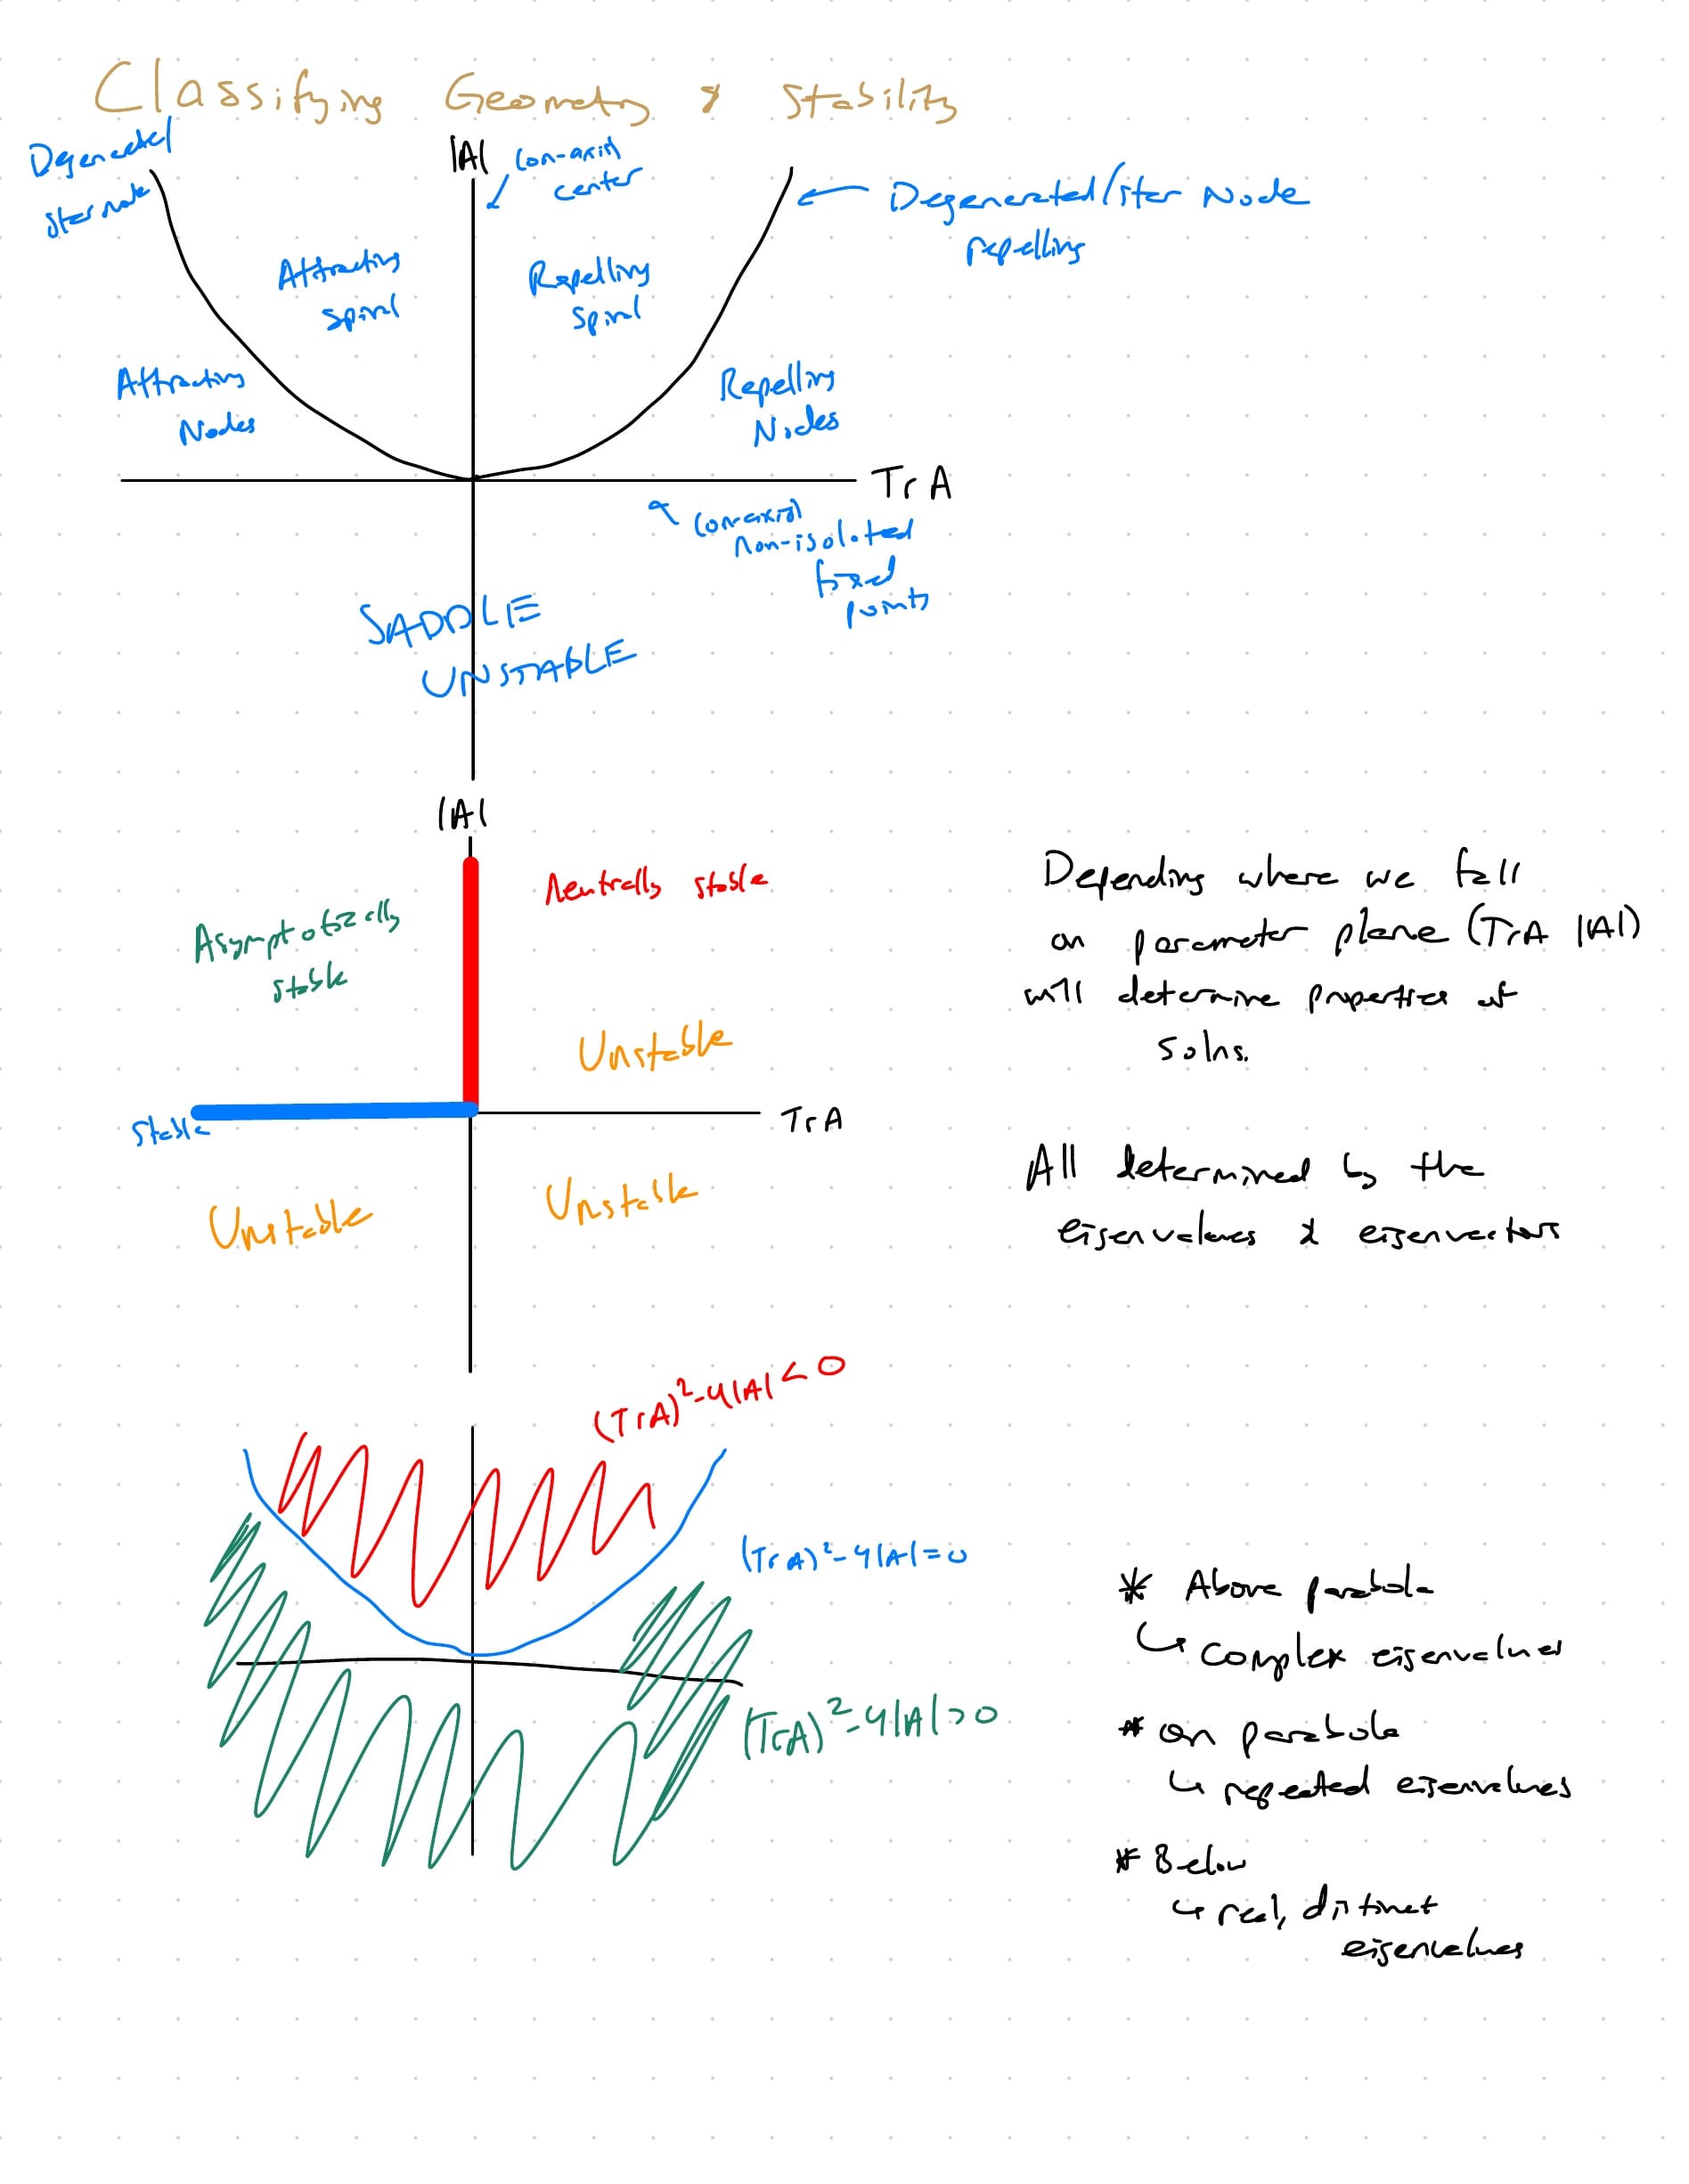 Classifying Geometry & Stability
Degenerated
star node
|A|
(on-axis)
center
Degenerated/star Node
repelling
Attracting
spiral
Repelling
spiral
Attracting
Nodes
Repelling
Nodes
Tr A
(on axis)
non-isolated
fixed
points
SADDLE
UNSTABLE
|A|
Neutrally stable
Asymptotically
stable
Unstable
Stable
Tr A
Unstable
Unstable
Depending where we fall
on parameter plane (TrA |A|)
will determine properties of
solns.
All determined by the
eigenvalues & eigenvectors
(TrA)²-4|A| < 0
(TrA)²-4|A|=0
(TrA)²-4|A|>0
* Above parabola
↳ complex eigenvalues
* on parabola
↳ repeated eigenvalues
* Below
↳ real, distinct
eigenvalues